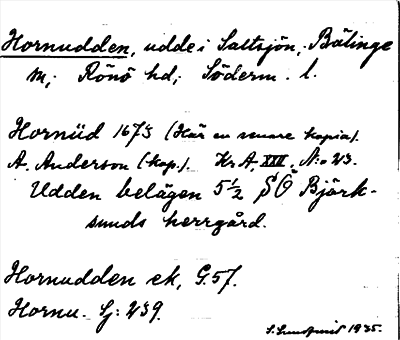 Hornudden, udde i Saltsjön, Bälinge
sn; Rönö hd; Söderm. l.
Hornüd 1675 (Här en senare kopia).
A. Anderson (kop.). Kr A, XXX, N:o 23.
Udden belägen 5 1/2 SO Björk-
sunds herrgård.
Hornudden ek, G.57.
Hornu. Sj: 239.
S. Lundqvist 1935.